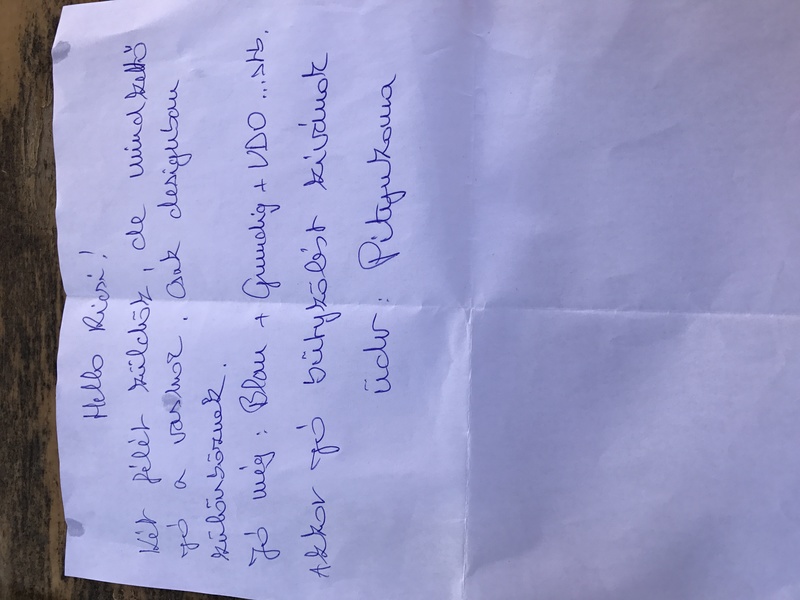 Helló Ricsi!
Két félét küldök, de mindkettő
jó a vashoz. Csak designban
különböznek.
Jó még: Blau + Grundig + VDO ...stb.
Akkor jó bütykölést kívánok
üdv: Pityukoma